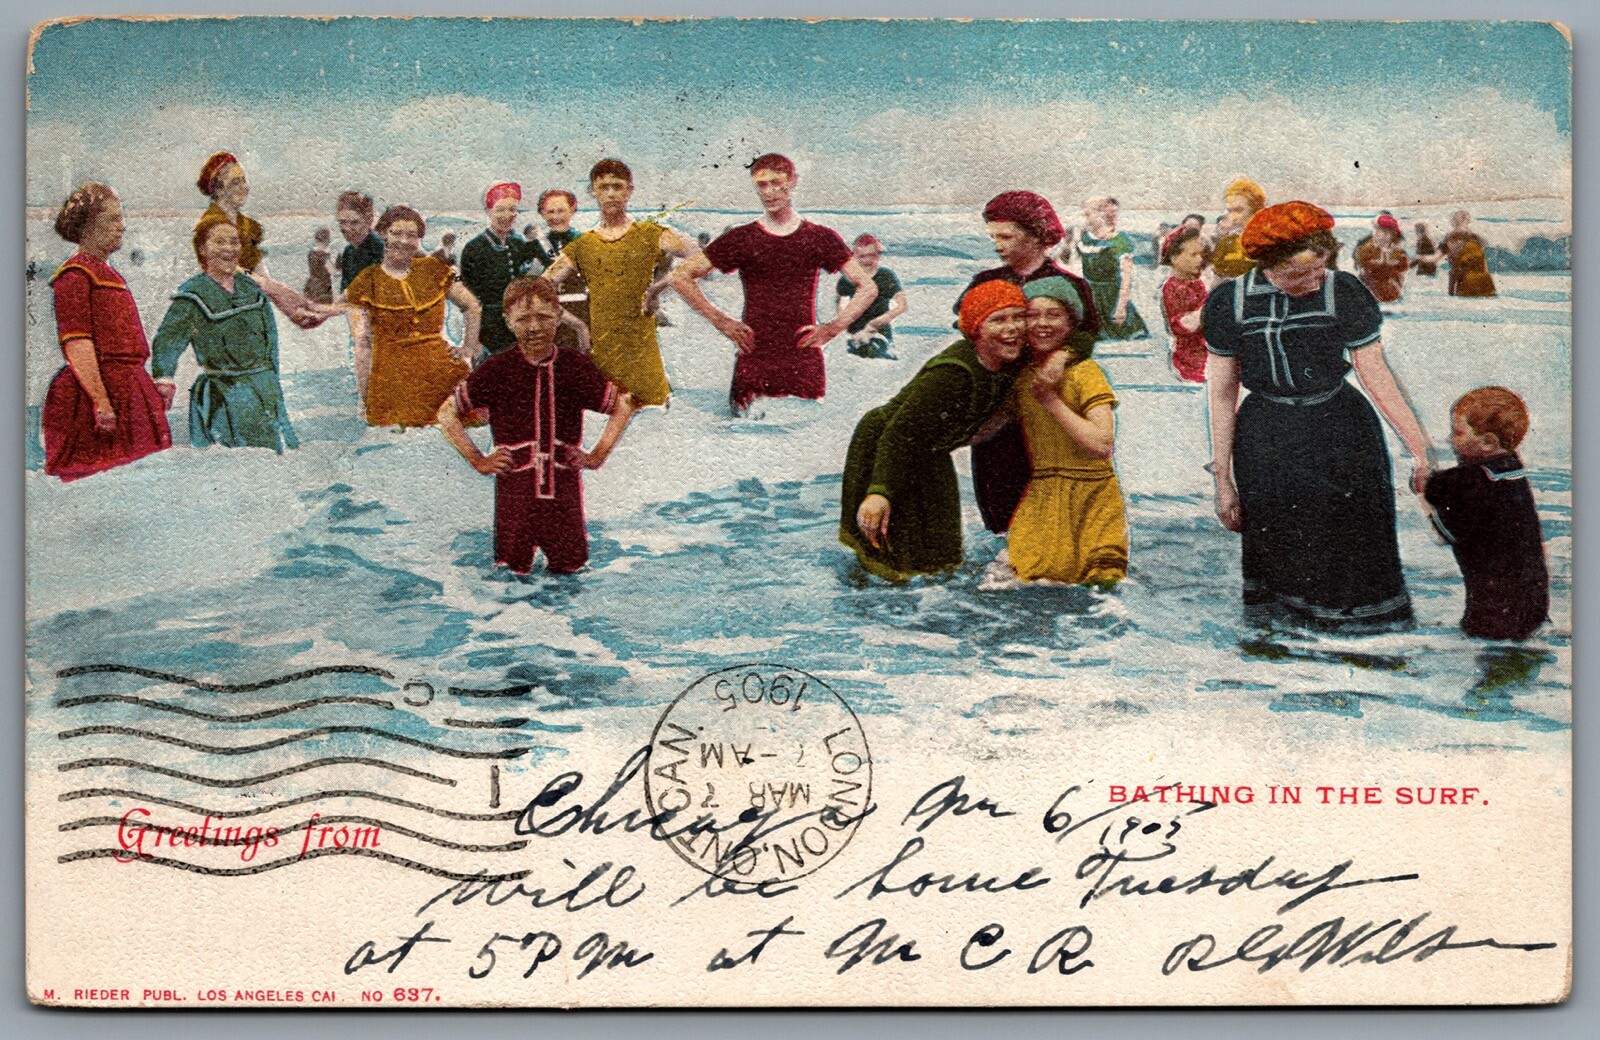 BATHING IN THE SURF.
Greetings from
LONDON, ONT. CAN.
MAR 7
7-AM
1905
C
1
Chicago Mr 6/1905
will be home Tuesday
at 5 P M at M C R
M. RIEDER PUBL. LOS ANGELES CAL NO 637.